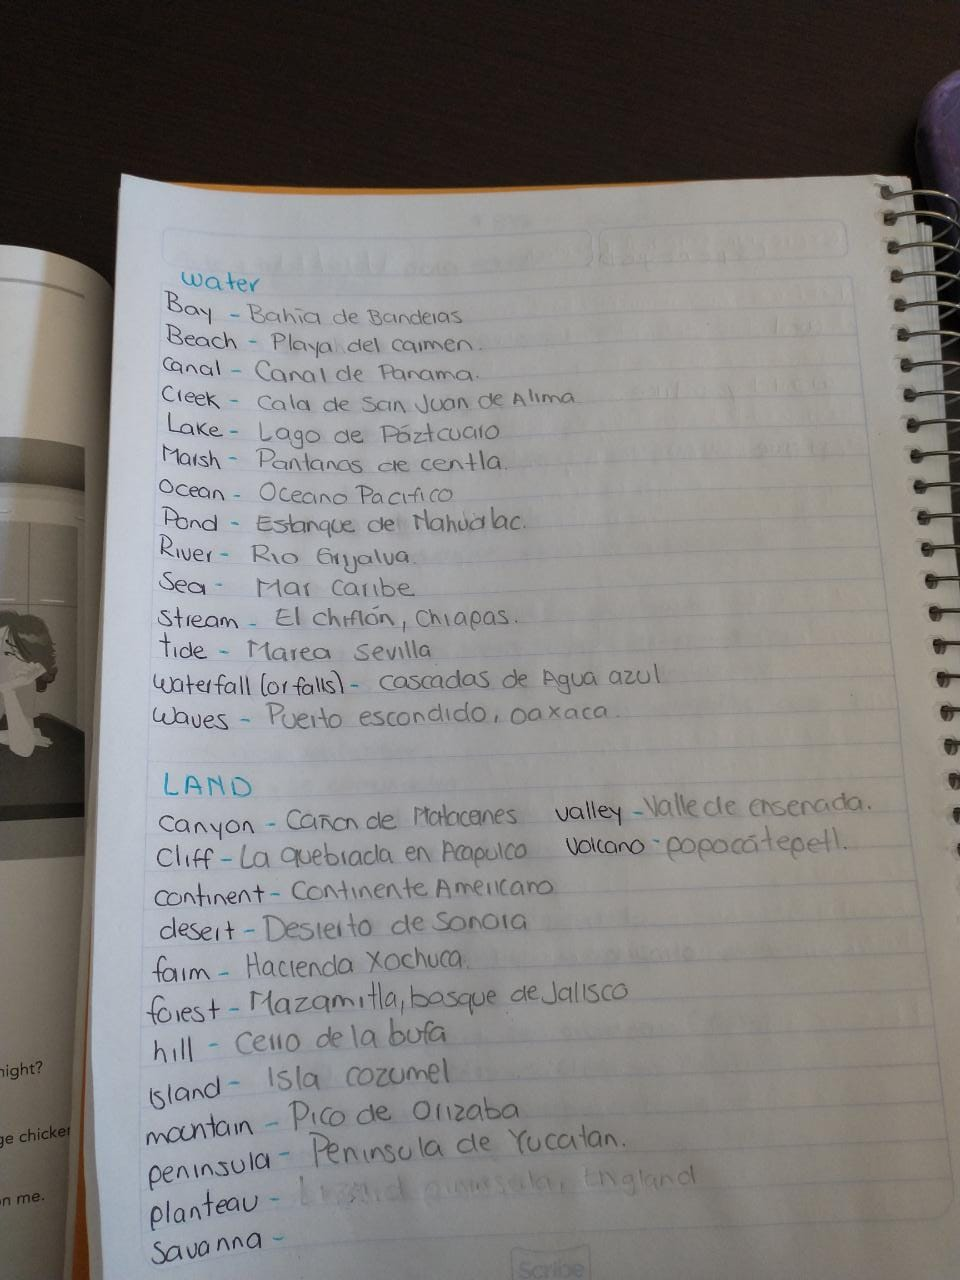 water
Bay - Bahia de Banderas
Beach - Playa del carmen.
canal - Canal de Panama.
Creek - Cala de San Juan de Alima
Lake - Lago de Páztcuaro
Marsh - Pantanos de centla.
Ocean - Oceano Pacifico
Pond - Estanque de Nahualac.
River - Rio Grijalva.
Sea - Mar Caribe
Stream - El chiflón, Chiapas.
tide - Marea Sevilla
waterfall (or falls) - cascadas de Agua azul
waves - Puerto escondido, oaxaca.
LAND
canyon - Cañon de Matacanes valley - Valle de ensenada.
Cliff - La quebrada en Acapulco Volcano - popocátepetl.
continent - Continente Americano
desert - Desierto de Sonora
farm - Hacienda Xochuca.
forest - Mazamitla, bosque de Jalisco
hill - Cerro de la bufa
Island - Isla cozumel
mountain - Pico de Orizaba
peninsula - Peninsula de Yucatan.
planteau - England
Savanna -
Scribe
night?
ge chicken
n me.